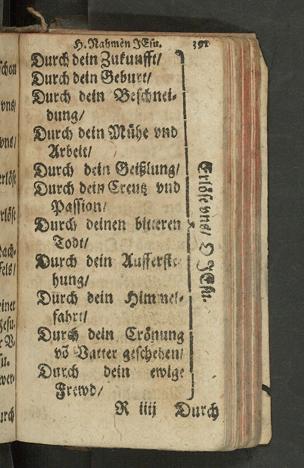 H. Nahmen JEsu. 391
Durch dein Zukunfft/
Durch dein Geburt/
Durch dein Beschnei-
dung/
Durch dein Mühe vnd
Arbeit/
Durch dein Geißlung/
Durch dein Creutz vnd
Passion/
Durch deinen bitteren
Todt/
Durch dein Aufferste-
hung/
Durch dein Himmel-
fahrt/
Durch dein Crönung
võ Vatter geschehen/
Durch dein ewige
Frewd/
Erlöse vns/ O JEsu.
R iiij Durch